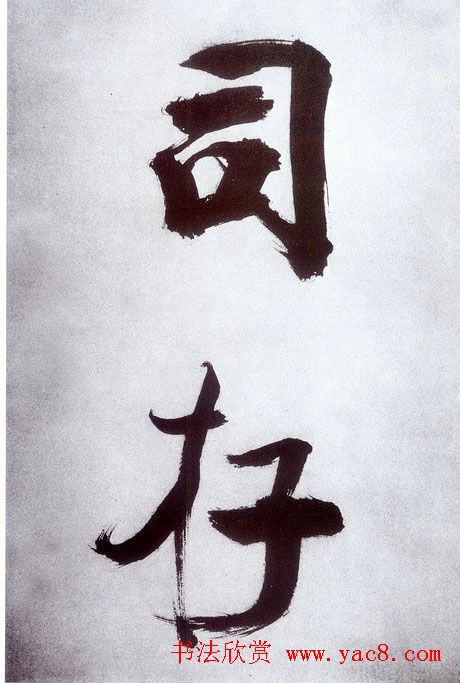 司
存
书法欣赏 www.yac8.com